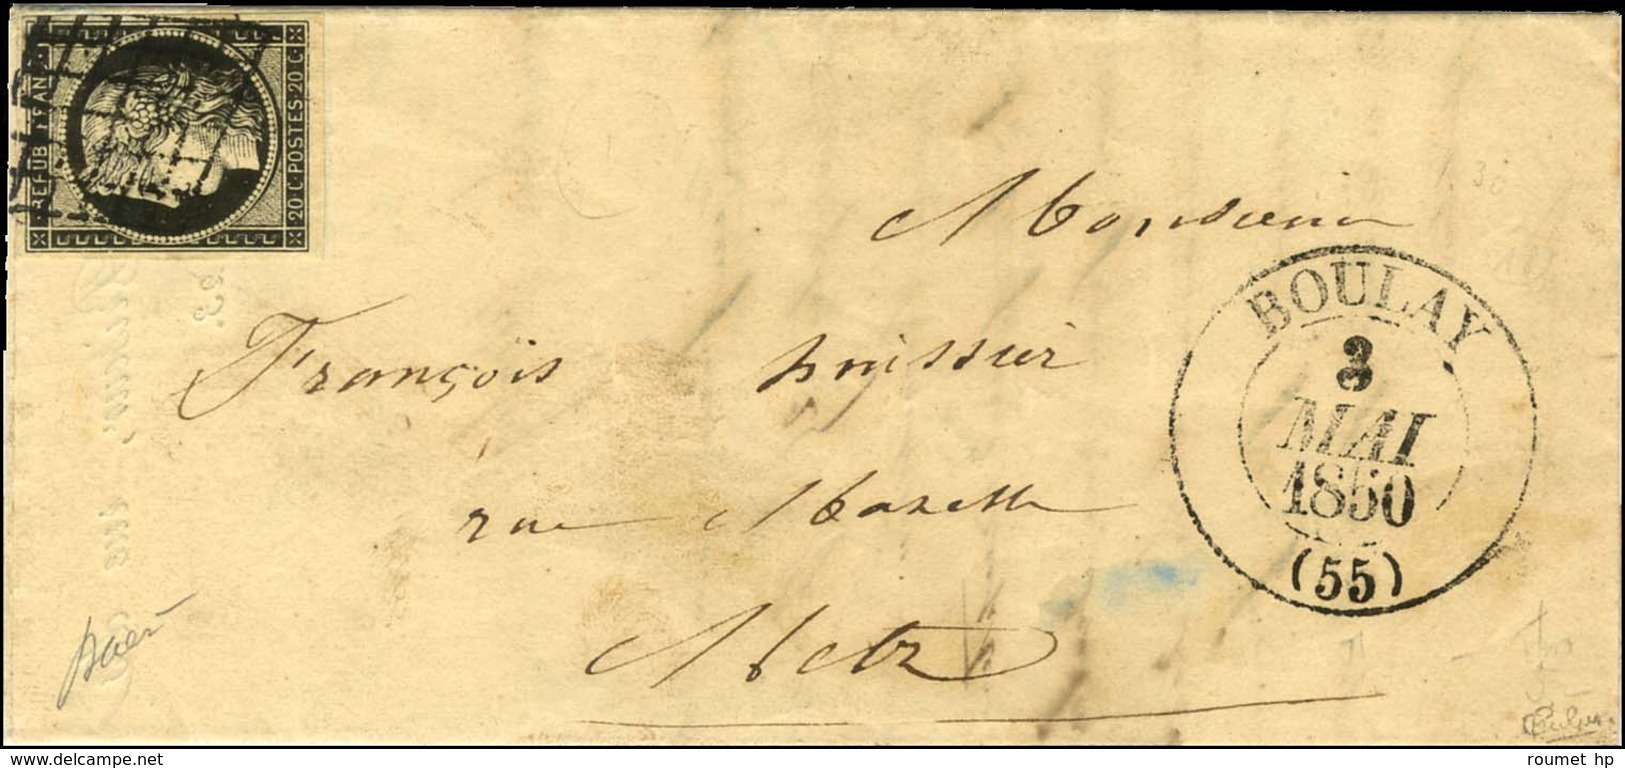 REPUB FRANC
20 C. POSTES 20 C.
Monsieur
François huissier
rue Mazelle
Metz
BOULAY
3
MAI
1850
(55)
roumet hp